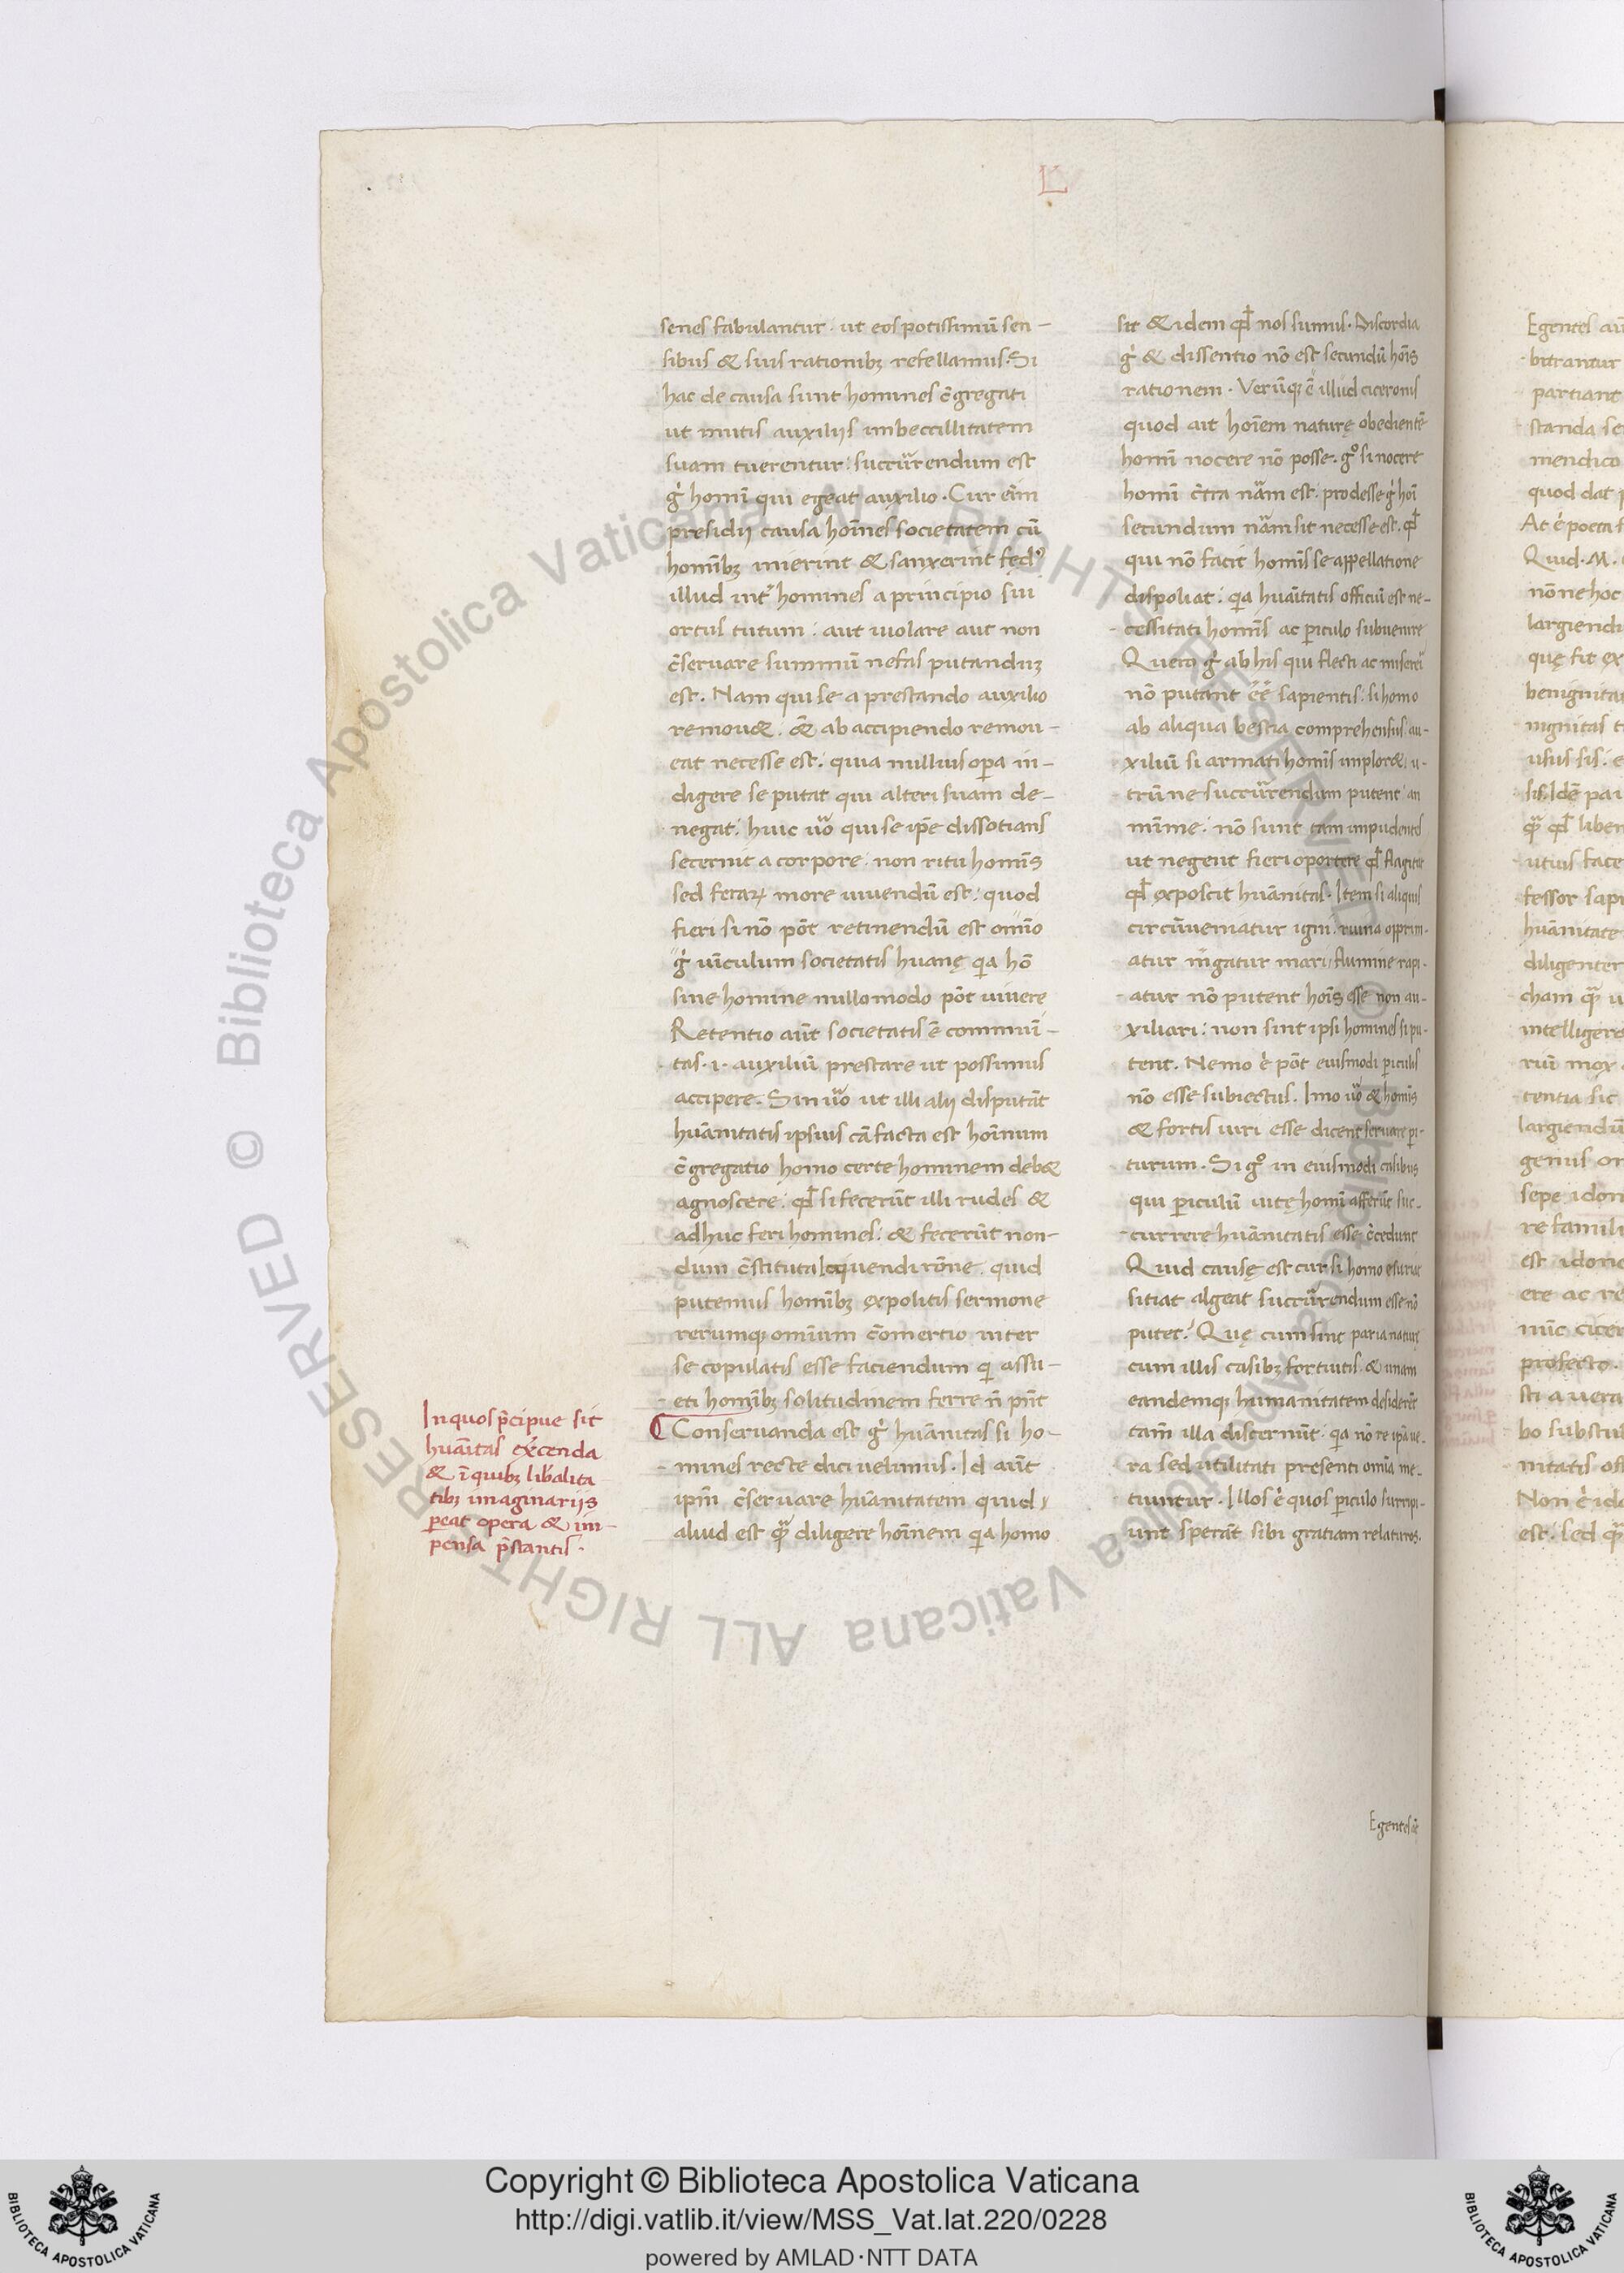 L
senes fabulantur · ut eos potissimū sen-
sibus & suis rationibꝫ refellamus. Si
hac de causa sunt homines c̄gregati
ut mutis auxilijs imbecillitatem
suam tuerentur: succurrendum est
g̊ homī qui egeat auxilio. Cur eīm
presidij causa hoīnes societatem cū
homībꝫ inierint & sanxerint fedꝰ
illud int̄ homines a principio sui
ortus tutum: aut uiolare aut non
c̄seruare summū nefas putanduꝫ
est. Nam qui se a prestando auxilio
remou&. & ab accipiendo remou-
eat necesse est: quia nullius opa in-
digere se putat qui alteri suam de-
negat: huic ūo qui se ip̄e dissotians
secernit a corpore: non ritu homīs
sed feraꝝ more uiuendū est: quod
fieri si nō pōt retinendū est omīo
g̊ uīculum societatis huane̜ qa hō
sine homine nullo modo pōt uiuere
Retentio aūt societatis ē commūi-
tas · i · auxiliū prestare ut possimus
accipere. Sin ūo ut illi alij disputāt
huānitatis ipsius cā facta est hoīnum
c̄gregatio homo certe hominem deb&
agnoscere: qd̄ si fecerūt illi rudes &
adhuc feri homines: & fecerūt non-
dum c̄stituta loquendi rōne: quid
putemus homībꝫ e̜xpolitis sermone
rerumqꝫ omīum c̄omertio inter
se copulatis esse faciendum q assu-
eti homībꝫ solitudinem ferre n̄ pn̄t
Conseruanda est g̊ huānitas si ho-
mines recte dici uelimus. Id aūt
ipm̄ c̄seruare huānitatem quid
aliud est qua̅ diligere hoīnem qa homo
Inquos p̄cipue sit
huāitas ex̄cenda
& ī quibꝫ lib̄alita
tibꝫ imaginarijs
peat opera & im-
pensa p̄stantis.
sit & idem qd̄ nos sumus. Discordia
g̊ & dissentio nō est secundū hoīs
rationem. Verūqꝫ ē illud ciceronis
quod ait hoīem nature̜ obedientē
homī nocere nō posse. g̊ si nocere
homī c̄tra nām est: prodesse g̊ hoī
secundum nām sit necesse est. qd̄
qui nō facit homīs se appellatione
dispoliat: qa huāitatis officiū est ne-
cessitati homīs ac piculo subuenire
Quero g̊ ab his qui flecti ac misereri
nō putant ēē sapientis: si homo
ab aliqua bestia comprehensus au-
xiliū si armati homīs implor&: u-
trū ne succurrendum putent: an
mīme: nō sunt tam impudentes
ut negent fieri oportere qd̄ flagitat
qd̄ e̜xposcit huānitas. Item si aliquis
circūueniatur igni: ruina opprim-
atur m̄gatur mari: flumine rapi-
atur nō putent hoīs esse non au-
xiliari: non sint ipsi homines si pu-
tent. Nemo ē pōt eiusmodi piculis
nō esse subiectus. Imo ūo & homīs
& fortis uiri esse dicent seruare pi-
turum. Si g̊ in eiusmodi casibus
qui piculū uite̜ homī afferūt suc-
currere huānitatis esse c̄cedunt
Quid cause̜ est cur si homo esuriat
sitiat algeat succurrendum esse nō
putet? Que̜ cum sint paria nature̜
cum illis casibꝫ fortuitis. & unam
eandemqꝫ humanitatem desiderēt
tam̄ illa discernūt: qa nō re ipā ue-
ra sed utilitati presenti omīa me-
tiuntur. Illos ē quos piculo surripi-
unt sperāt sibi gratiam relaturos.
Egentes
Egentes
bitrantur
partiant
standa se
mendico
quod dat
Quid. M.
nō ne hoc
largiendi
que̜ fit ex
benignitas
nignitas
usus sis:
utius face
fessor sapi
huānitate
diligenter
cham
intelligere
rū mox
tentia sic
largiendū
genus
sepe idon
re famili
est idone
ere ac re
nūc cicer
profecto.
sti a uera
bo substul
nitatis off
est: sed
© Biblioteca Apostolica Vaticana ALL RIGHTS RESERVED © Biblioteca Apostolica Vaticana ALL RIGHTS RESERVED
Copyright © Biblioteca Apostolica Vaticana
http://digi.vatlib.it/view/MSS_Vat.lat.220/0228
powered by AMLAD·NTT DATA
BIBLIOTECA APOSTOLICA VATICANA
BIBLIOTECA APOSTOLICA VATICANA